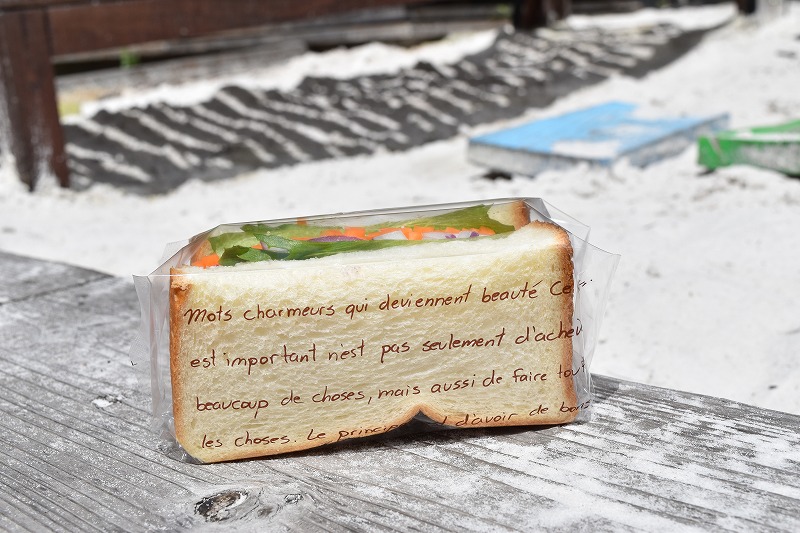 Mots charmeurs qui deviennent beauté Ce
est important n'est pas seulement d'ache
beaucoup de choses, mais aussi de faire tout
les choses. Le princip d'avoir de bon